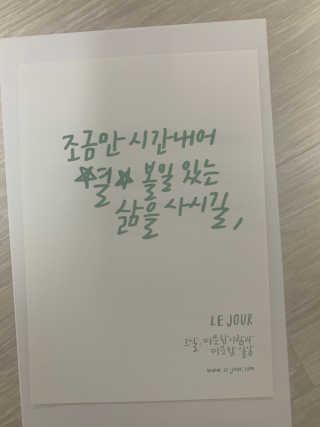 조금만 시간내어
별 볼일 있는
삶을 사시길,
LE JOUR
www.le-jour.com